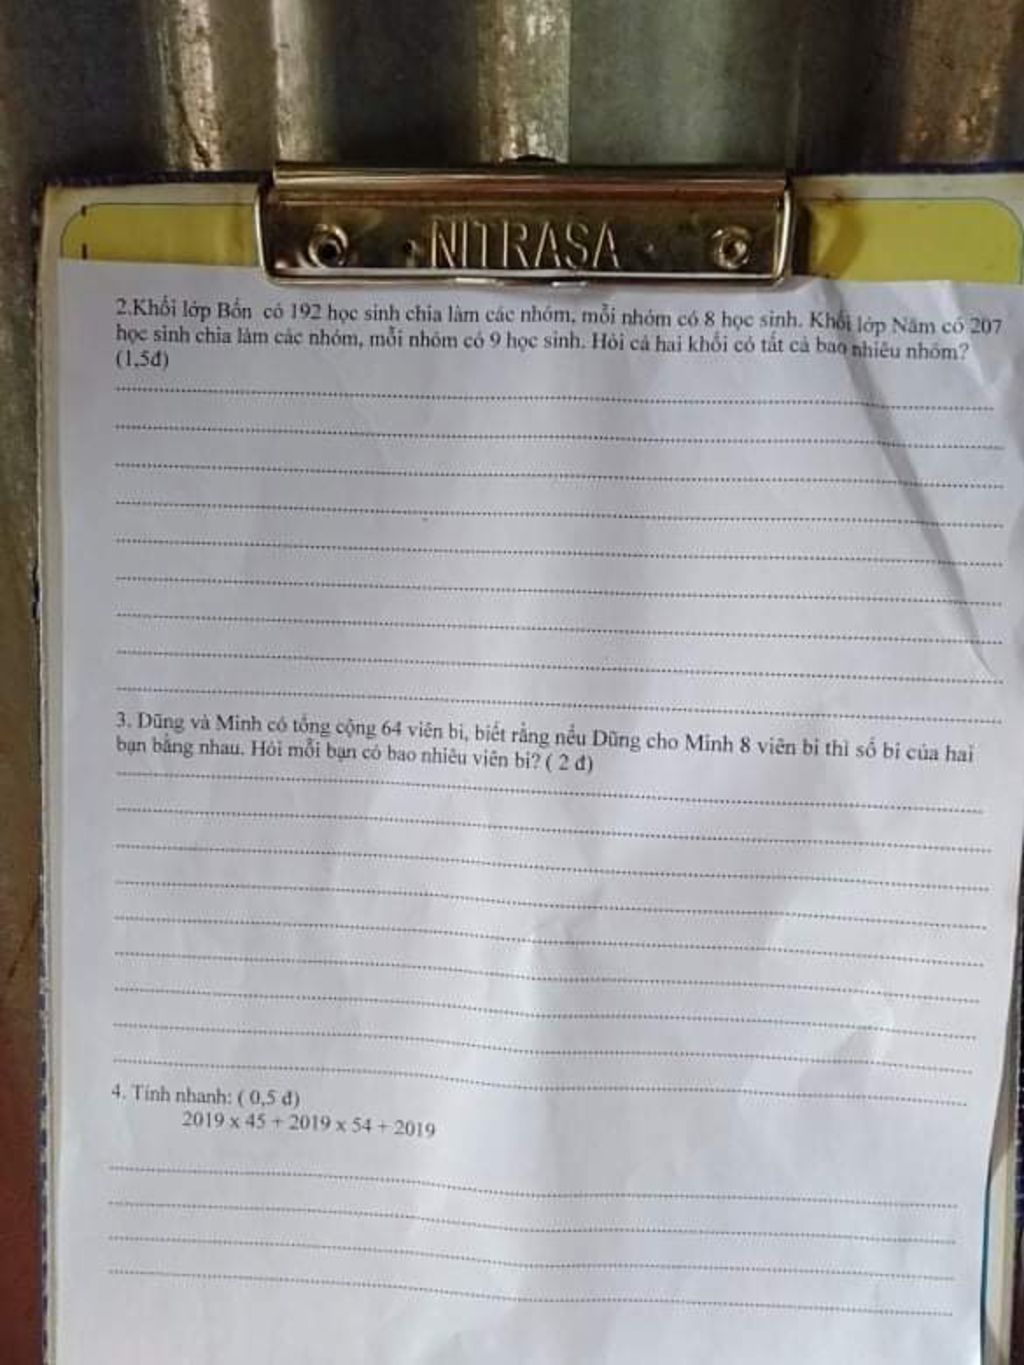 NITRASA
2.Khối lớp Bốn có 192 học sinh chia làm các nhóm, mỗi nhóm có 8 học sinh. Khối lớp Năm có 207
học sinh chia làm các nhóm, mỗi nhóm có 9 học sinh. Hỏi cả hai khối có tất cả bao nhiêu nhóm?
(1,5đ)
3. Dũng và Minh có tổng cộng 64 viên bi, biết rằng nếu Dũng cho Minh 8 viên bi thì số bi của hai
bạn bằng nhau. Hỏi mỗi bạn có bao nhiêu viên bi? ( 2 đ)
4. Tính nhanh: ( 0,5 đ)
2019 x 45 + 2019 x 54 + 2019